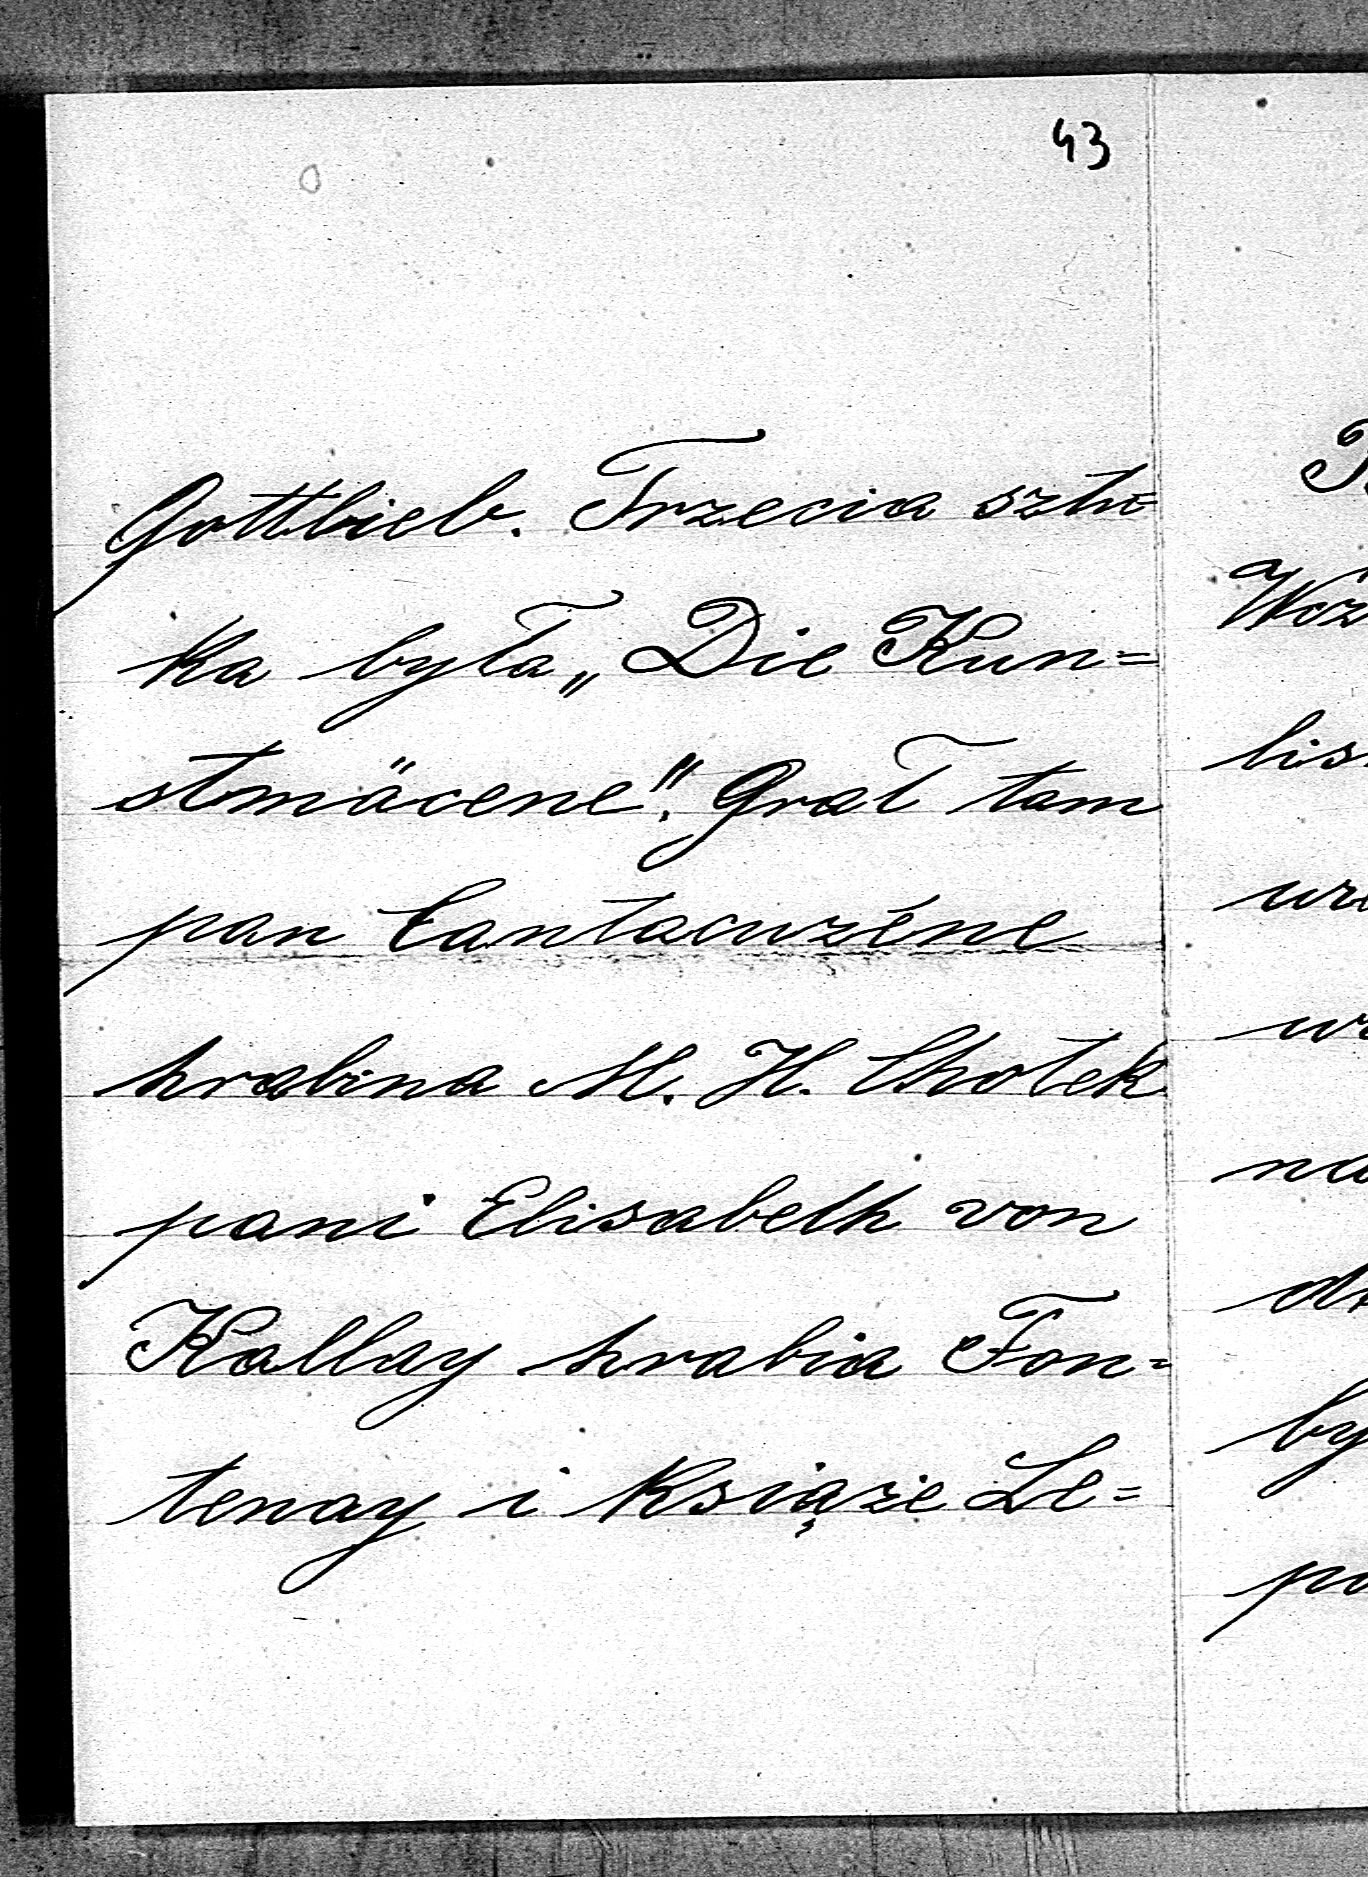 43
Gottlieb. Trzecia sztu=
ka była „Die Kun=
stmäcene". Grał tam
pan Cantacuzéne
hrabina M. H. Chotek
pani Elisabeth von
Kallay hrabia Fon=
tenay i Książe Le=